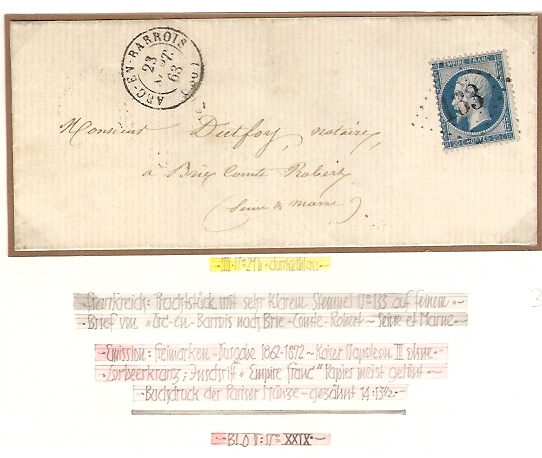 ARC-EN-BARROIS
23
63
EMPIRE FRANC.
Monsieur Dutfoy, notaire,
à Brie Comte Robert
(Seine et Marne)
dunkelblau
Frankreich: Prachtstück mit sehr klarem Stempel N=133 auf feinem
Brief von "Arc-en-Barrois nach Brie-Comte-Robert ~ Seine et Marne
Emission: Freimarken-Ausgabe 1862-1872 ~ Kaiser Napoleon III ohne
Lorbeerkranz; Inschrift "Empire franc" Papier meist getönt
Buchdruck der Pariser Münze - gezähnt 14:13½
XXIX